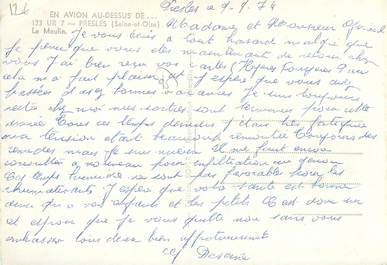 126
EN AVION AU-DESSUS DE...
123 UR 7 — PRESLES (Seine-et-Oise)
Le Moulin.
Presles 9-9-74
Madame et Monsieur
Je vous écris a tout hasard malgré que
Je pense que vous êtes maintenant de retour chez
vous J'ai bien reçu vos cartes
cela m'a fait plaisir et J'espère que vous avez
passées d'assez bonnes vacances Je suis toujours
restée chez moi mes sorties sont terminées pour cette
année Tous ces temps derniers J'étais très fatiguée
ma tension étant beaucoup remontée Toujours des
remèdes mais je suis mieux Il me faut encore
consulter a nouveau pour infiltration au genou
Ces temps humides ne sont pas favorable pour les
rhumatisants J'espère que votre santé est bonne
ainsi qu'a vos enfants et les petits C'est dans cet
espoir que je vous quitte non sans vous
embrasser tous deux bien affectueusement